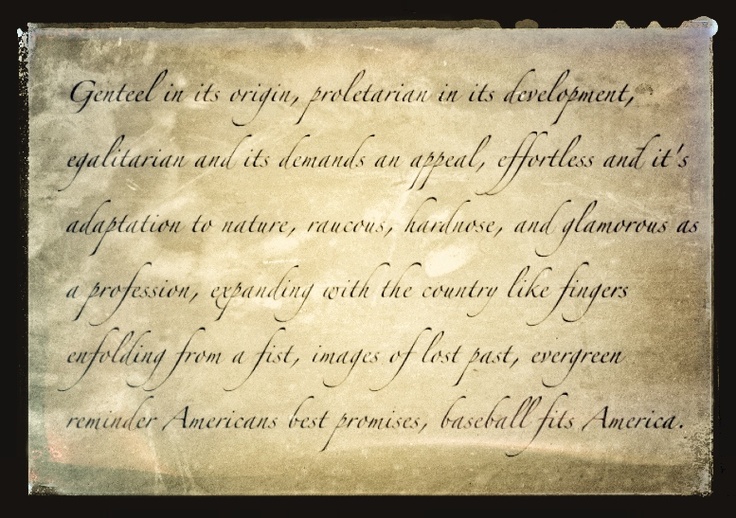 Genteel in its origin, proletarian in its development,
egalitarian and its demands an appeal, effortless and it's
adaptation to nature, raucous, hardnose, and glamorous as
a profession, expanding with the country like fingers
enfolding from a fist, images of lost past, evergreen
reminder Americans best promises, baseball fits America.